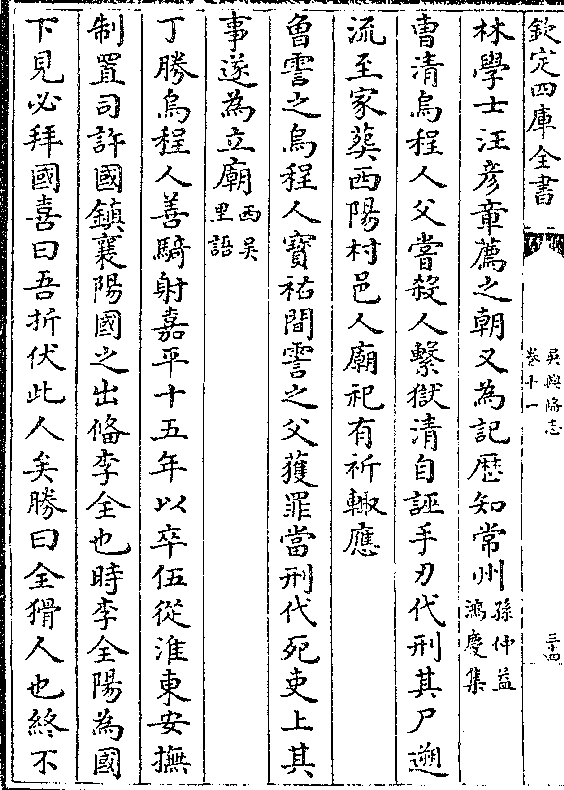 欽定四庫全書
吳興備志
卷十一
三十四
林學士汪彥章薦之朝又為記歷知常州孫仲益
鴻慶集
曹清烏程人父嘗殺人繫獄清自誣手刃代刑其尸遡
流至家葬西陽村邑人廟祀有祈輙應
魯雲之烏程人寶祐間雲之父獲罪當刑代死吏上其
事遂為立廟西吳
里語
丁勝烏程人善騎射嘉平十五年以卒伍從淮東安撫
制置司許國鎮襄陽國之出備李全也時李全陽為國
下見必拜國喜曰吾折伏此人矣勝曰全猾人也終不